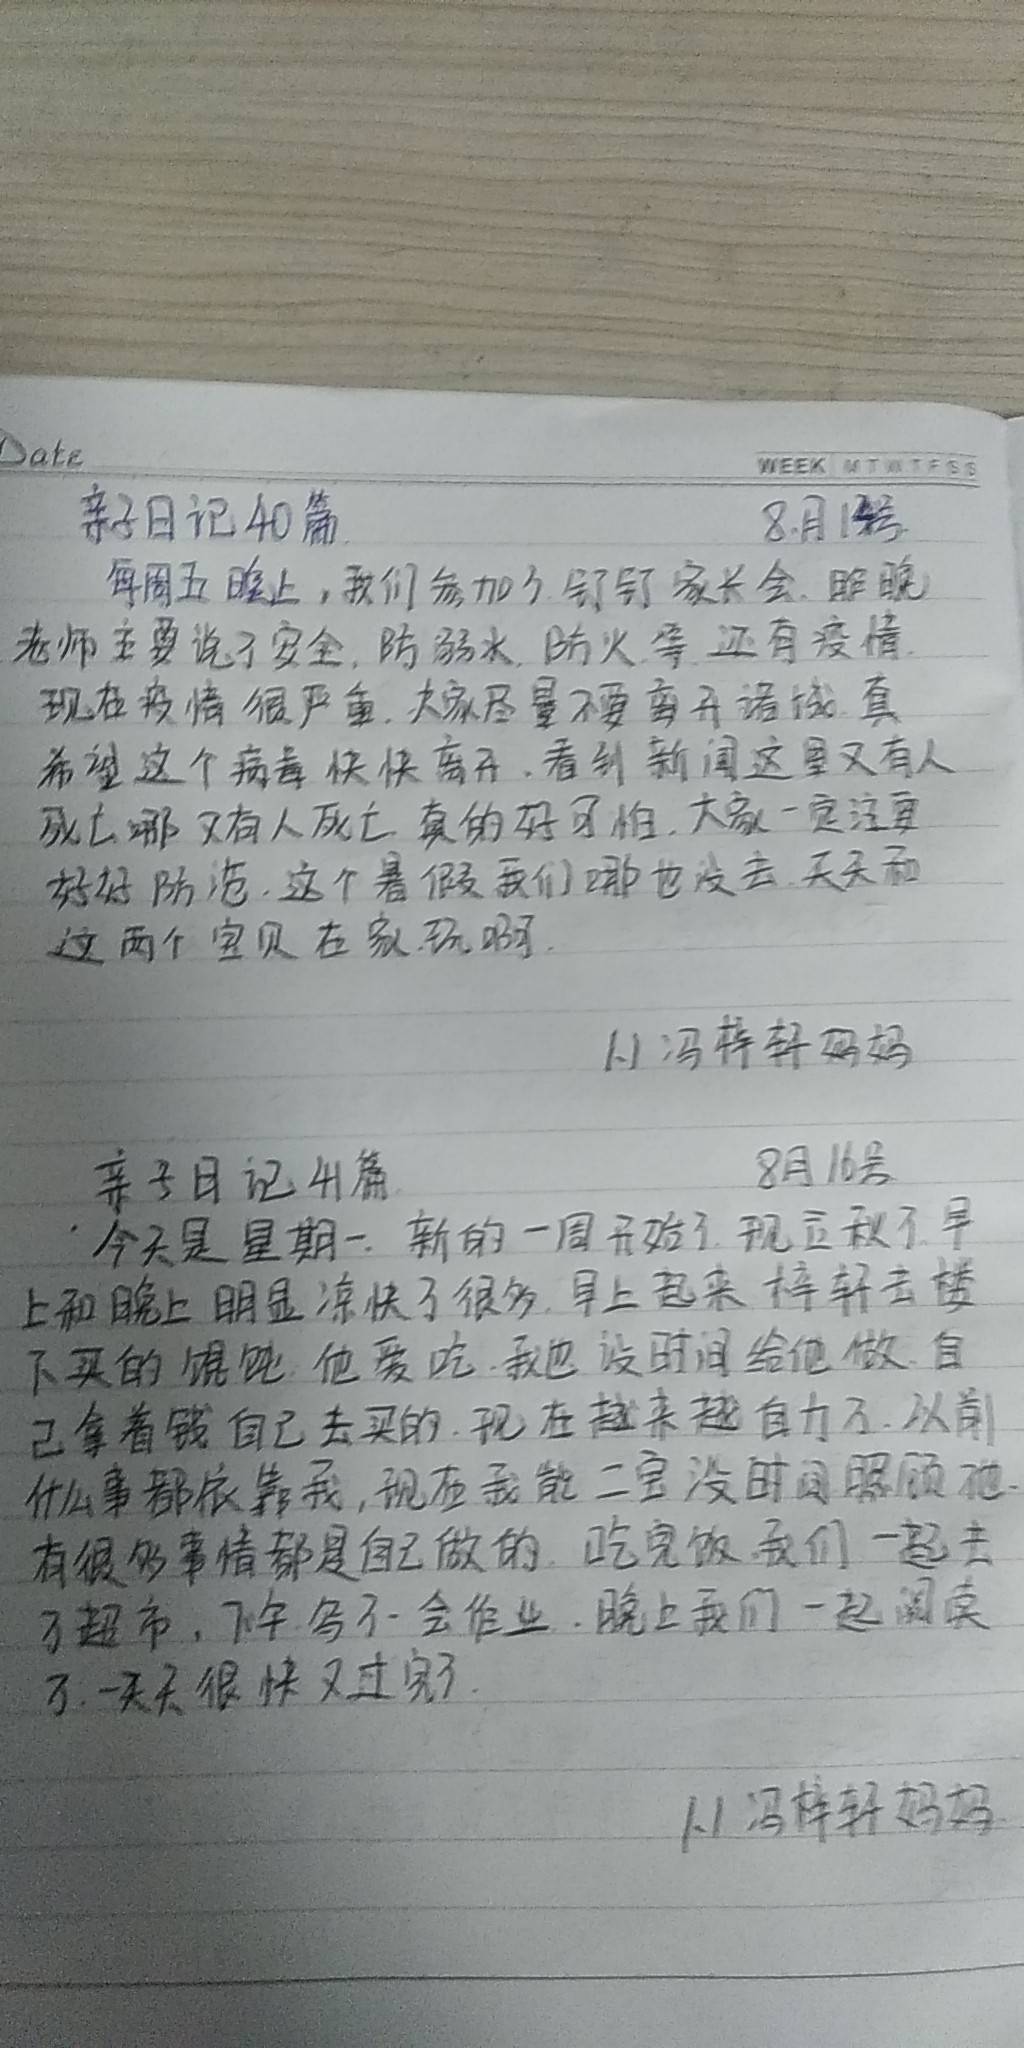 Date
WEEK M T W T F S S
亲子日记40篇 8.月14号
每周五晚上,我们参加了钉钉家长会.昨晚
老师主要说了安全,防溺水,防火等还有疫情.
现在疫情很严重.大家尽量不要离开诸城.真
希望这个病毒快快离开.看到新闻这里又有人
死亡哪又有人死亡真的好可怕.大家一定注要
好好防范.这个暑假我们哪也没去天天和
这两个宝贝在家玩啊.
1.1冯梓轩妈妈
亲子日记41篇 8月16号
今天是星期一.新的一周开始了.现立秋了.早
上和晚上明显凉快了很多.早上起来梓轩去楼
下买的馄饨.他爱吃.我也没时间给他做.自
己拿着钱自己去买的.现在越来越自力了.以前
什么事都依靠我,现在我能二宝没时间照顾他.
有很多事情都是自己做的.吃完饭.我们一起去
了超市,下午写了一会作业.晚上我们一起阅读
了.一天天很快又过完了.
1.1冯梓轩妈妈